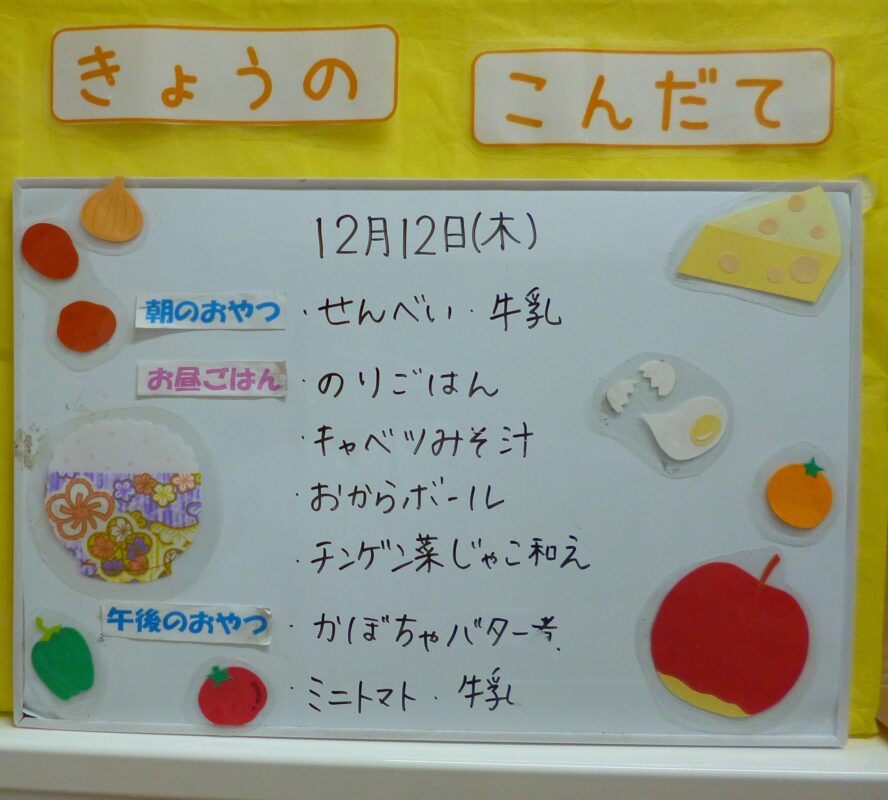 きょうの こんだて
12月12日(木)
朝のおやつ ・せんべい・牛乳
お昼ごはん ・のりごはん
・キャベツみそ汁
・おからボール
・チンゲン菜じゃこ和え
午後のおやつ ・かぼちゃバター煮
・ミニトマト・牛乳